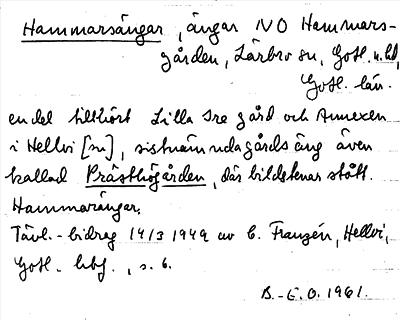 Hammarsängar, ängar NO Hammars-
gården, Lärbro sn, Gotl. n. hd,
Gotl. län.
en del tillhört Lilla Ire gård och Annexen
i Hellvi [sn], sistnämnda gårds äng även
kallad Prästhögården, där bildstenar stått.
Hammarängar.
Tävl.-bidrag 14/3 1949 av C. Franzén, Hellvi,
Gotl. hbf., s. 6.
B.-E. O. 1961.